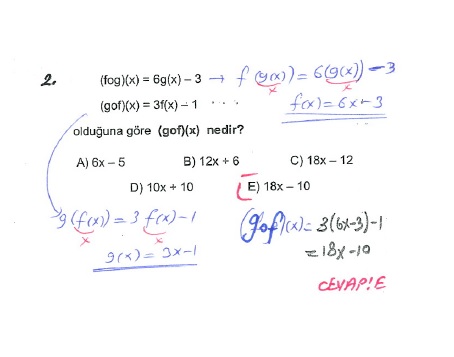 2. (fog)(x) = 6g(x) – 3 → f(g(x)) = 6(g(x)) – 3
x x
(gof)(x) = 3f(x) – 1 f(x) = 6x – 3
olduğuna göre (gof)(x) nedir?
A) 6x – 5 B) 12x + 6 C) 18x – 12
D) 10x + 10 E) 18x – 10
g(f(x)) = 3 f(x) – 1 (gof)(x) = 3(6x-3)-1
x x
g(x) = 3x-1 = 18x-10
CEVAP!E